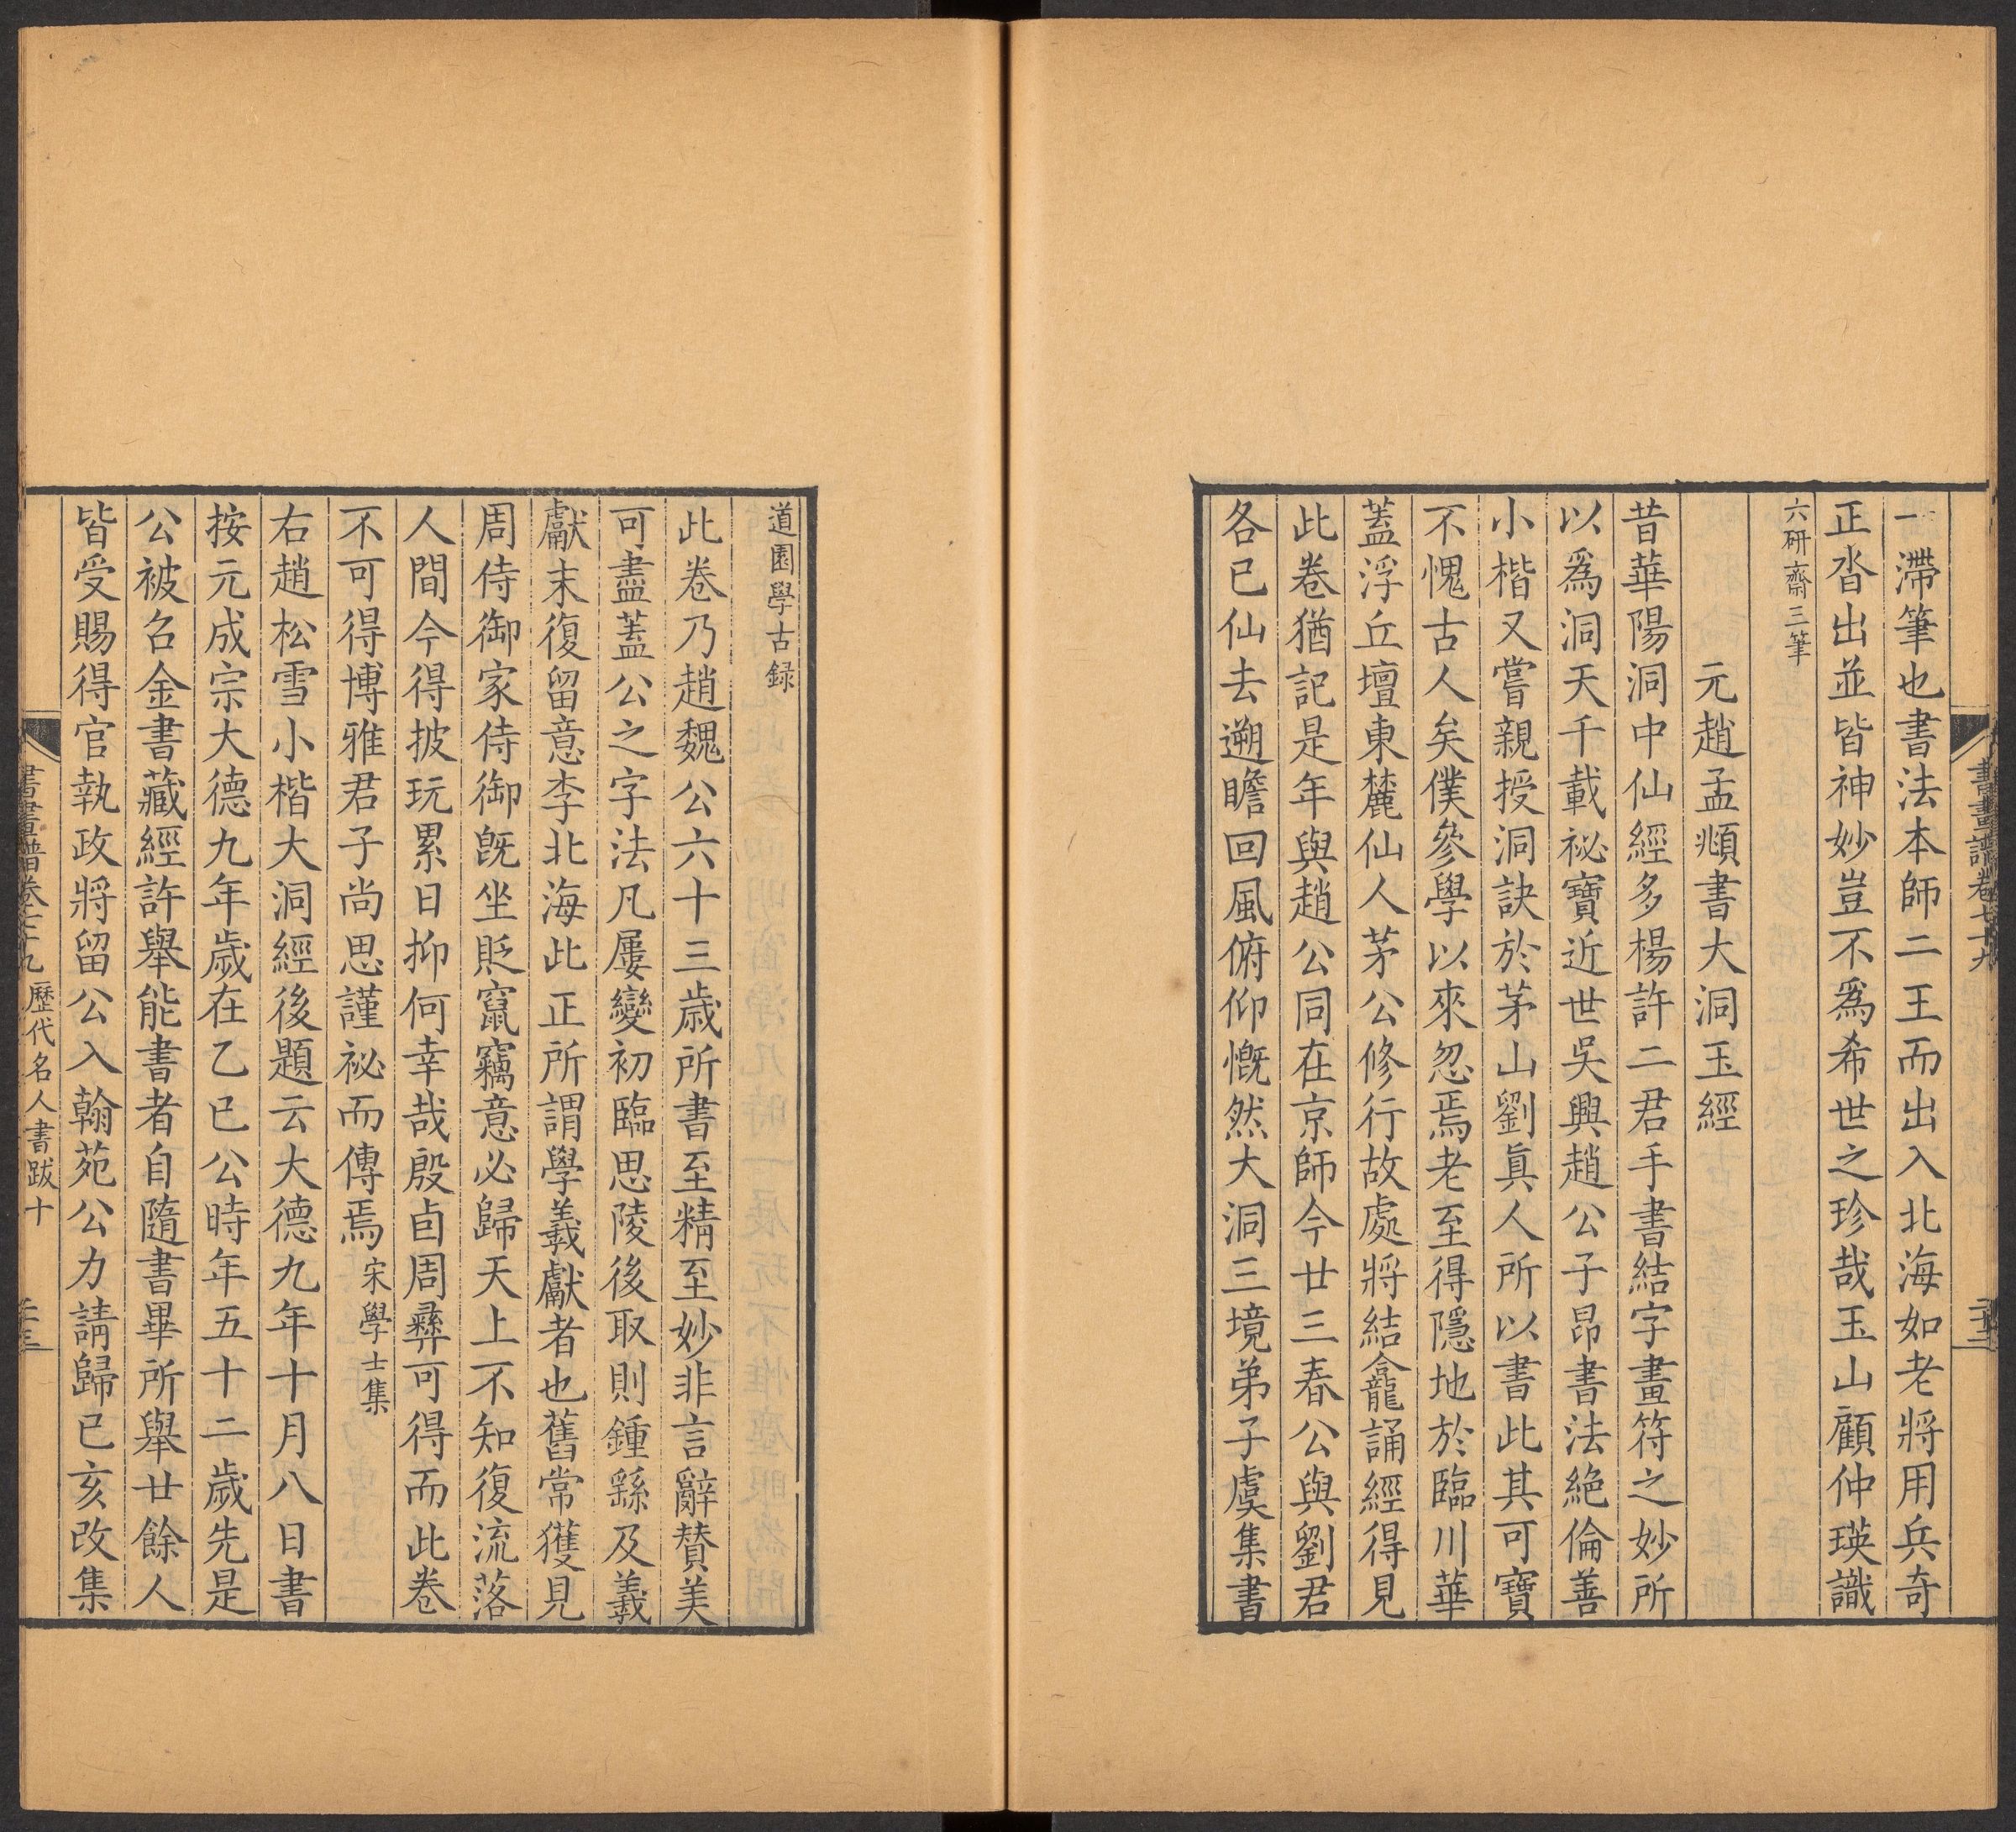 書畫譜卷七十九
一滯筆也書法本師二王而出入北海如老將用兵奇
正沓出並皆神妙豈不爲希世之珍哉玉山顧仲瑛識
六研齋三筆
元趙孟頫書大洞玉經
昔華陽洞中仙經多楊許二君手書結字畫符之妙所
以爲洞天千載祕寶近世吳興趙公子昂書法絶倫善
小楷又嘗親授洞訣於茅山劉眞人所以書此其可寶
不愧古人矣僕參學以來忽焉老至得隱地於臨川華
蓋浮丘壇東麓仙人茅公修行故處將結龕誦經得見
此卷猶記是年與趙公同在京師今廿三春公與劉君
各已仙去遡瞻回風俯仰慨然大洞三境弟子虞集書
道園學古録
此卷乃趙魏公六十三歲所書至精至妙非言辭賛美
可盡蓋公之字法凡屢變初臨思陵後取則鍾繇及羲
獻末復留意李北海此正所謂學羲獻者也舊常獲見
周侍御家侍御旣坐貶竄竊意必歸天上不知復流落
人間今得披玩累日抑何幸哉殷卣周彝可得而此卷
不可得博雅君子尚思謹祕而傳焉宋學士集
右趙松雪小楷大洞經後題云大德九年十月八日書
按元成宗大德九年歲在乙巳公時年五十二歲先是
公被召金書藏經許舉能書者自隨書畢所舉廿餘人
皆受賜得官執政將留公入翰苑公力請歸已亥改集
書畫譜卷七十九 歷代名人書跋十